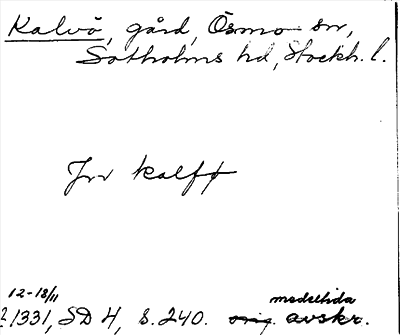 Kalvö, gård, Ösmo sn,
Sotholms hd, Stockh. l.
Jnr kalfø
12-18/11
1331, SD 4, s. 240. orig. medeltida avskr.